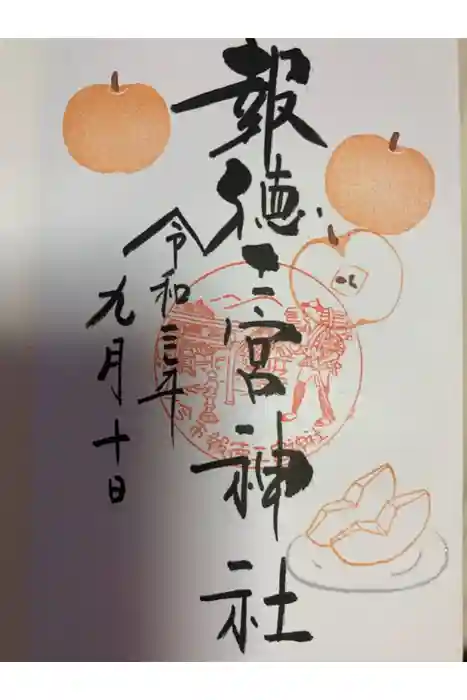 報徳二宮神社
令和三年
九月十日